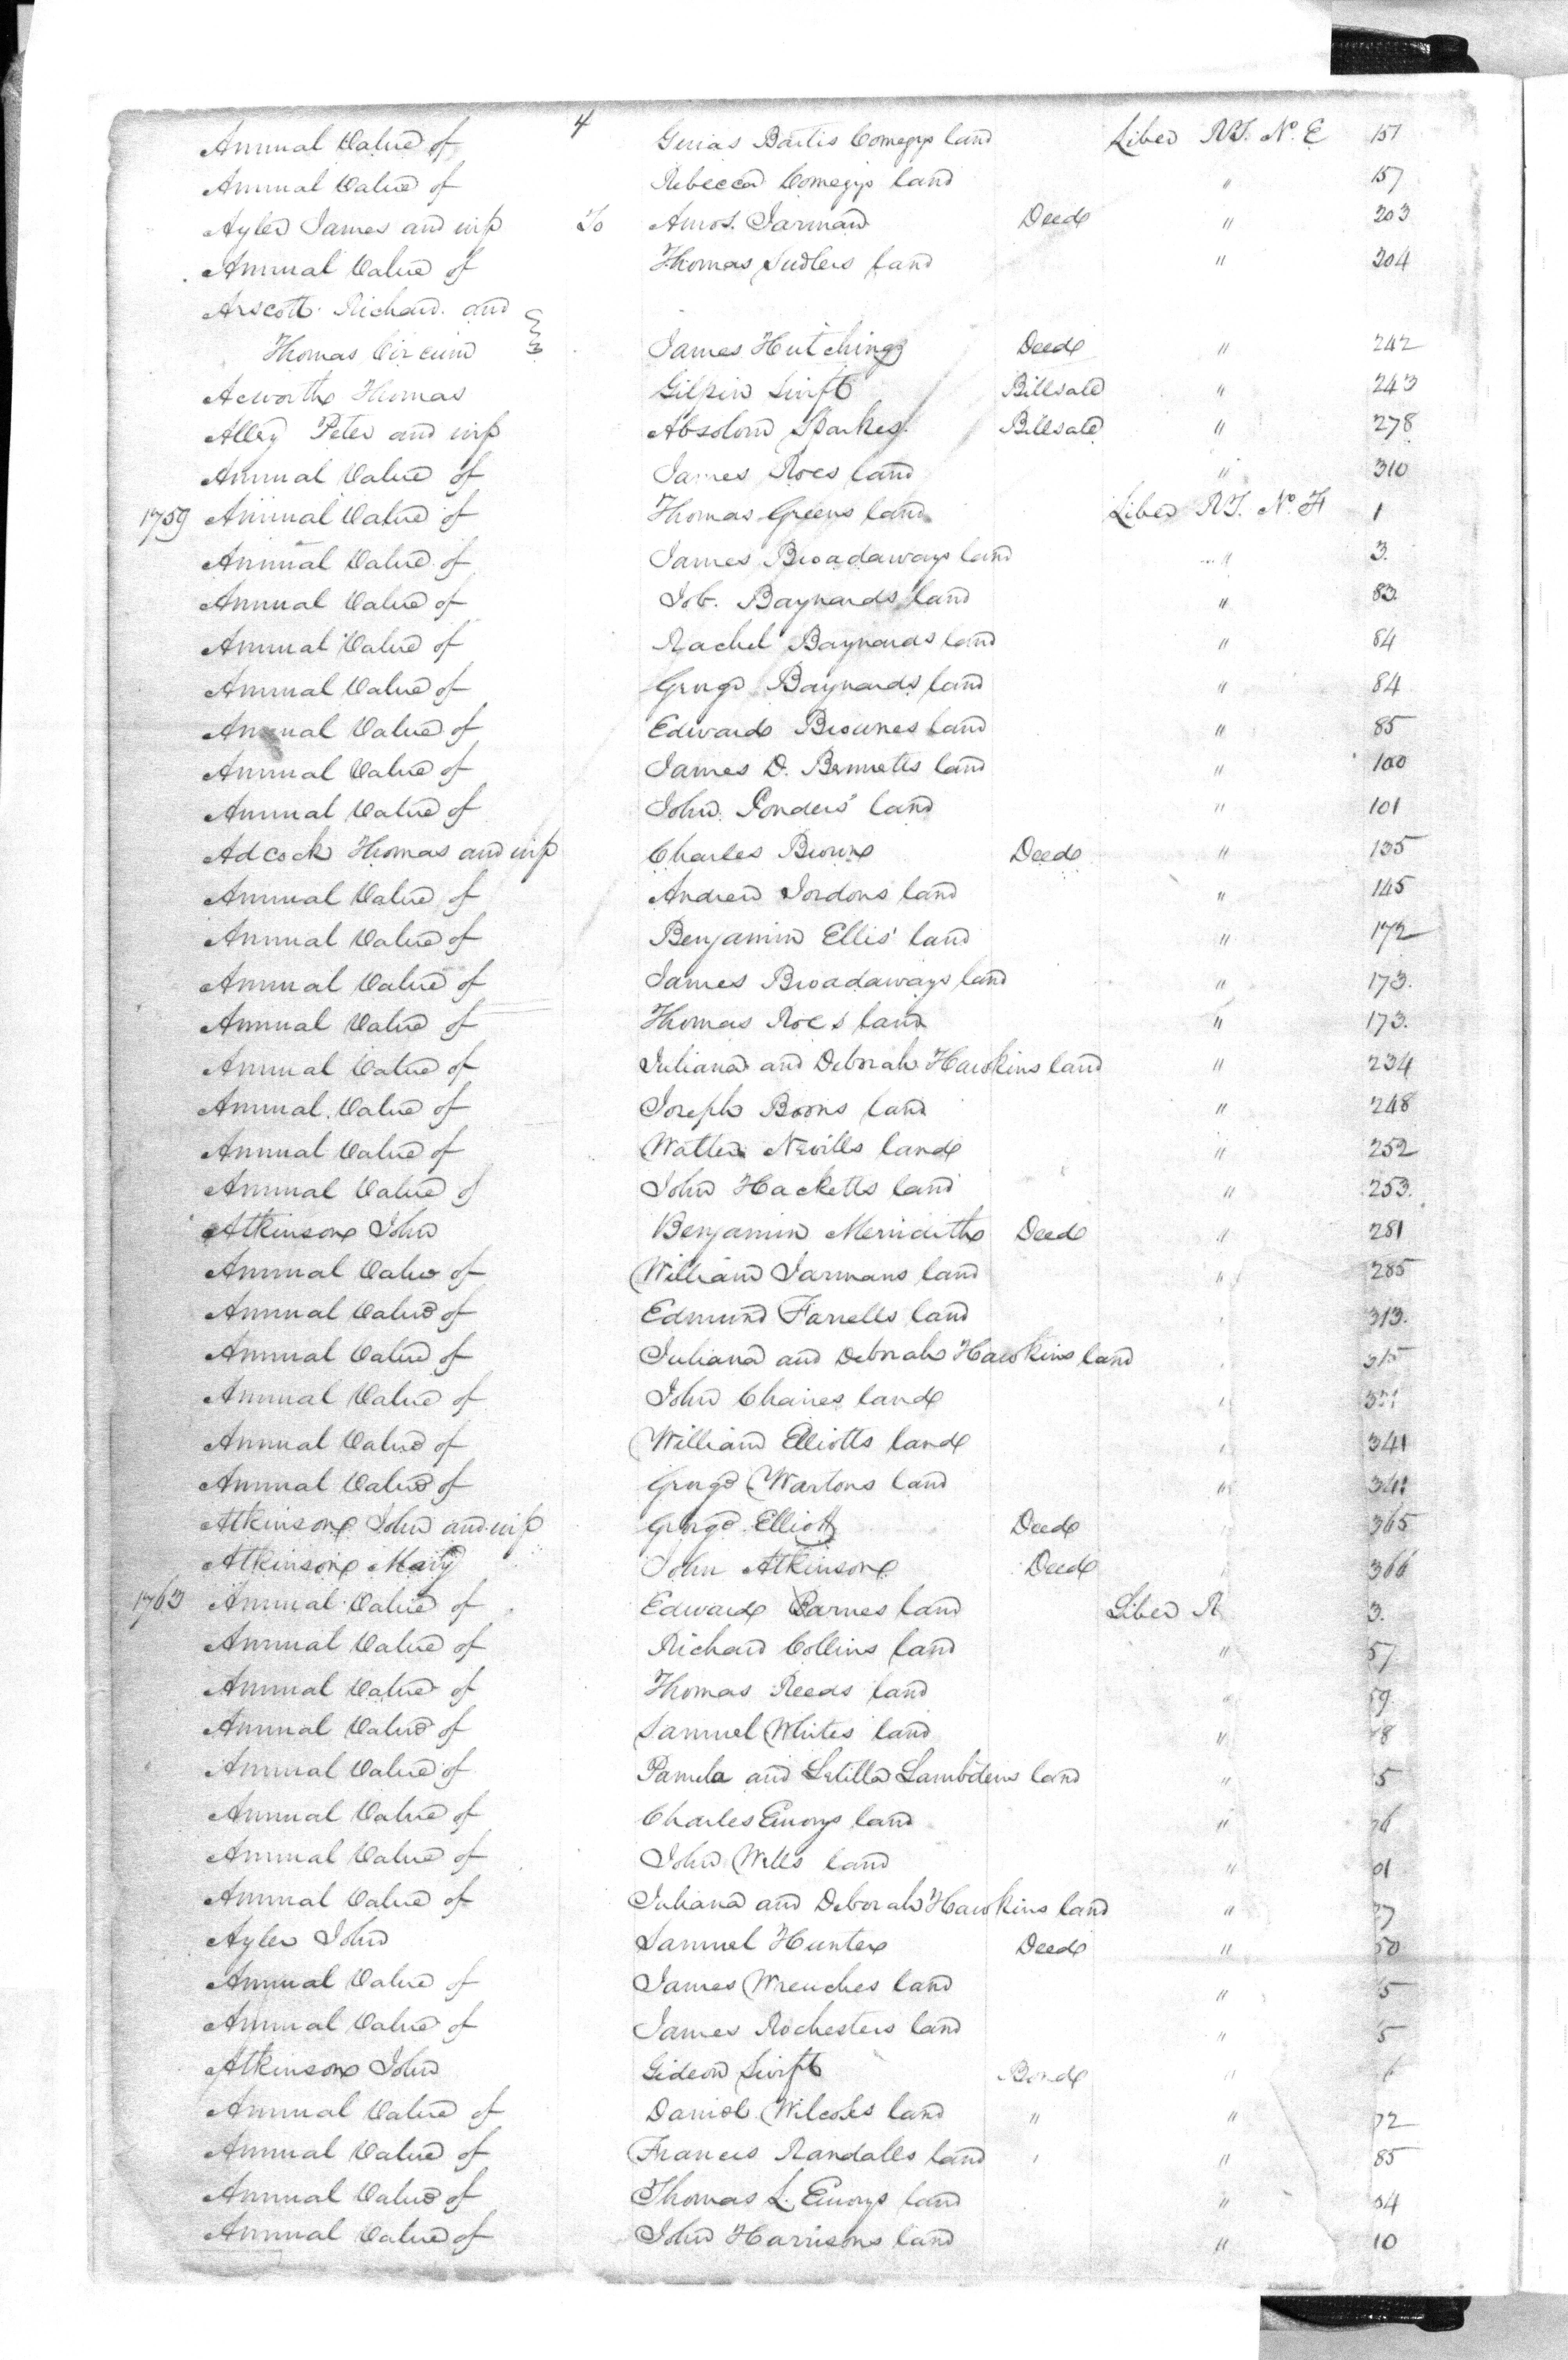 4
Annual Value of Gerias Bartis Comegys land Liber RT. No. E 151
Annual Value of Rebecca Comegys land " 157
Ayler James and wife To Amos. Jarman Deed " 203
Annual Value of Thomas Sudlers land " 204
Arscott Richard. and
Thomas Circum James Hutchings Deed " 242
Acworth Thomas Gilpin Swift Billsale " 243
Alley Peter and wife Absolom Sparkes Billsale " 278
Annual Value of James Roes land " 310
1759 Annual Value of Thomas Greens land Liber RT. No. F 1
Annual Value of James Broadaways land " 3
Annual Value of Job. Baynards land " 83
Annual Value of Rachel Baynards land " 84
Annual Value of George Baynards land " 84
Annual Value of Edward Brownes land " 85
Annual Value of James D. Bennetts land " 100
Annual Value of John Ponders' land " 101
Adcock Thomas and wife Charles Browne Deed " 135
Annual Value of Andrew Jordons land " 145
Annual Value of Benjamin Ellis' land " 172
Annual Value of James Broadaways land " 173.
Annual Value of Thomas Roes land " 173.
Annual Value of Juliana and Deborah Hawkins land " 234
Annual Value of Joseph Boons land " 248
Annual Value of Walter Nevills land " 252
Annual Value of John Hacketts land " 253.
Atkinson John Benjamin Meridith Deed " 281
Annual Value of William Jarmans land " 285
Annual Value of Edmund Farrells land 313.
Annual Value of Juliana and Deborah Hawkins land 315
Annual Value of John Chaires land "
Annual Value of William Elliotts land " 341
Annual Value of George Wartons land " 341
Atkinson John and wife George Elliott Deed 365
Atkinson Mary John Atkinson Deed 366
1763 Annual Value of Edward Barnes land Liber R 3.
Annual Value of Richard Collins land " 57
Annual Value of Thomas Reeds land " 59
Annual Value of Samuel Whites land " 8
Annual Value of Pamela and Letilla Lambdens land " 5
Annual Value of Charles Emorys land " 76
Annual Value of John Wells land " 01
Annual Value of Juliana and Deborah Hawkins land " 7
Ayler John Samuel Hunter Deed " 50
Annual Value of James Wrenches land " 5
Annual Value of James Rochesters land " 5
Atkinson John Gideon Swift Bond " 6
Annual Value of Daniel Wilcoxes land " " 72
Annual Value of Francis Randalls land " 85
Annual Value of Thomas L. Emorys land " 04
Annual Value of John Harrisons land " 10